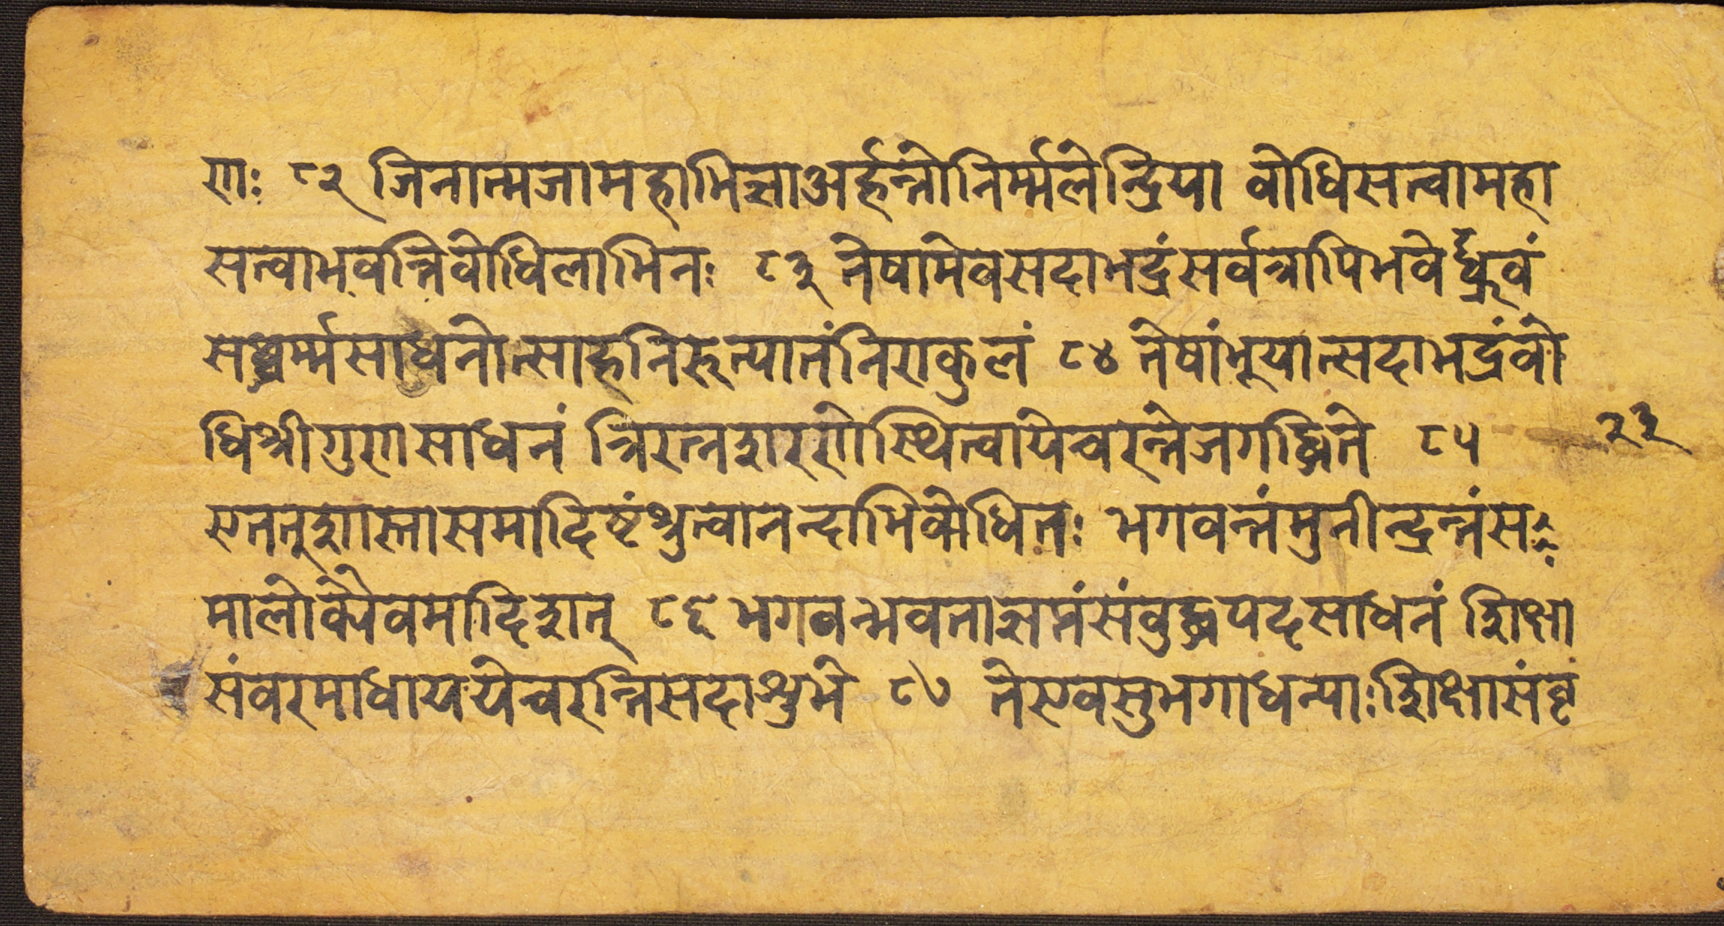 णाः ८२ जिनात्मजामहाभिज्ञाअर्हन्तोनिर्म्मलेन्द्रिया वोधिसत्वामहा
सत्वाभवन्तिवोधिलाभिनः ८३ तेषामेवसदाभद्रंसर्वत्रापिभवेर्द्ध्रुवं
सद्धर्म्मसाधनोत्साहनिरुत्पातंनिराकुलं ८४ तेषांभूयात्सदाभद्रंवो
धिश्रीगुणसाधनं त्रिरत्नशरणेस्थित्वायेचरन्तेजगद्धिते ८५
एतत्शास्तासमादिष्टंश्रुत्वानन्दाभिवोधितः भगवन्तंमुनीन्द्रन्तंस
मालोक्यैवमादिशत् ८६ भगवन्भवताज्ञप्तंसंवुद्धपदसाधनं शिक्षा
संवरमाधाययेचरन्तिसदाशुभे ८७ तेएवसुभगाधन्याःशिक्षासंवृ
२३